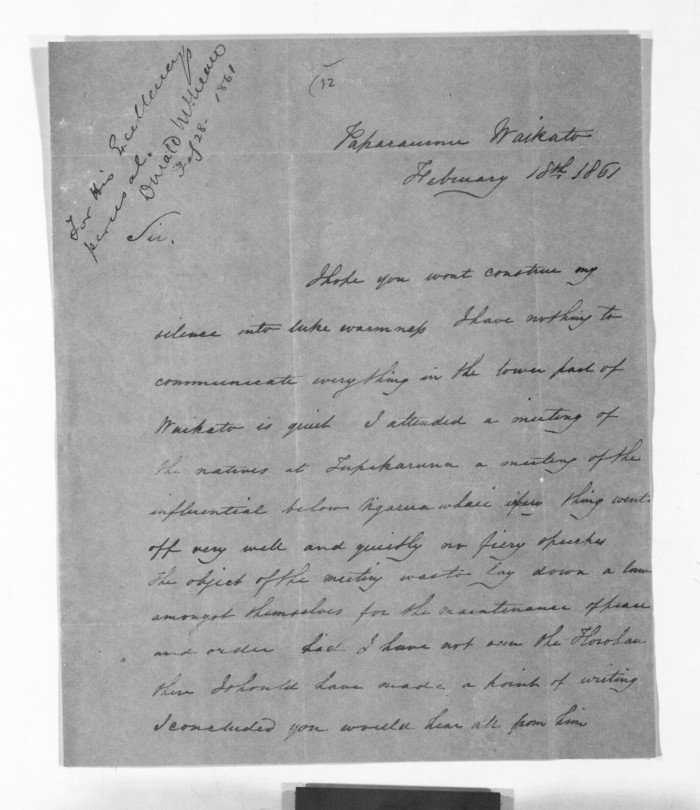 For His Excellency's
perusal.
Donald McLean
Feb 28 - 1861
12
Paparaumu Waikato
February 18th 1861
Sir.
I hope you wont construe my
silence into luke warmness I have nothing to
communicate everything in the lower part of
Waikato is quiet I attended a meeting of
the natives at a meeting of the
influential below Ngaruawhaie thing went
off very well and quietly no fiery speeches
the object of the meeting was to lay down a law
amongst themselves for the maintenance of peace
and order had I have not seen the
there I should have made a point of writing
I concluded you would hear all from him